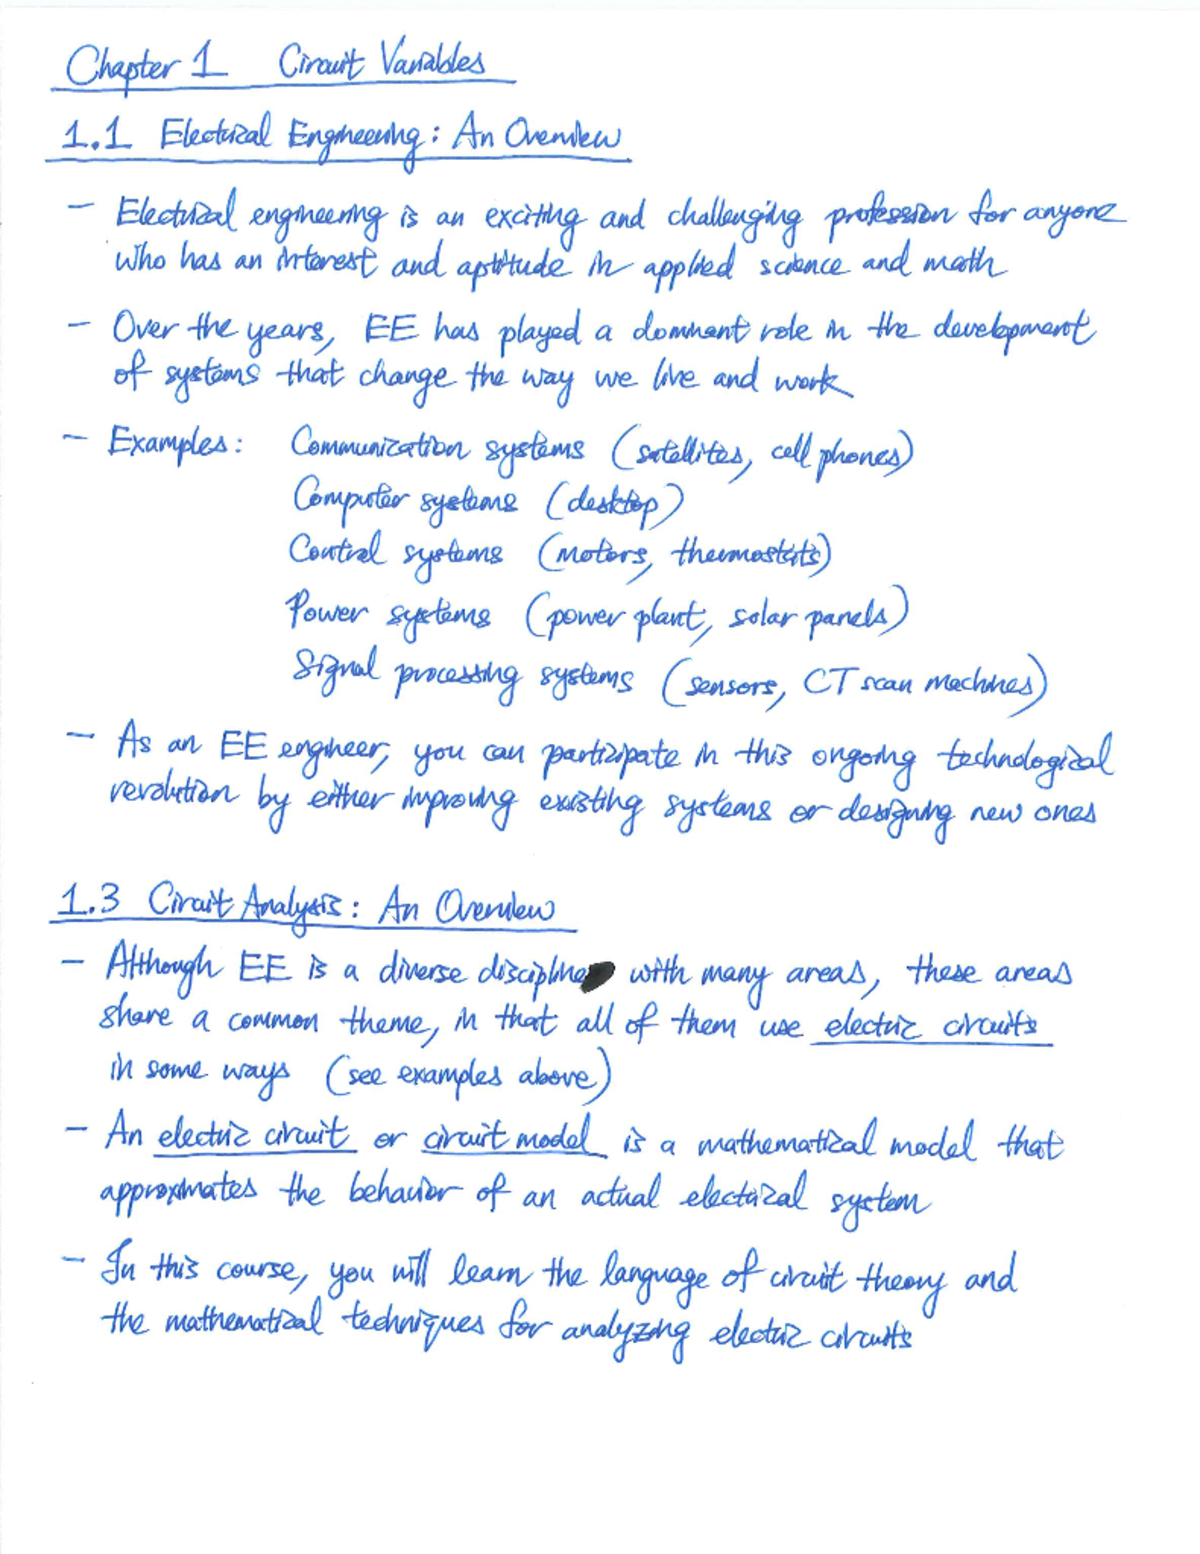 Chapter 1 Circuit Variables
1.1 Electrical Engineering: An Overview
- Electrical engineering is an exciting and challenging profession for anyone
who has an interest and aptitude in applied science and math
- Over the years, EE has played a dominant role in the development
of systems that change the way we live and work
- Examples: Communication systems (satellites, cell phones)
Computer systems (desktop)
Control systems (motors, thermostats)
Power systems (power plant, solar panels)
Signal processing systems (sensors, CT scan machines)
- As an EE engineer, you can participate in this ongoing technological
revolution by either improving existing systems or designing new ones
1.3 Circuit Analysis: An Overview
- Although EE is a diverse discipline with many areas, these areas
share a common theme, in that all of them use electric circuits
in some ways (see examples above)
- An electric circuit or circuit model is a mathematical model that
approximates the behavior of an actual electrical system
- In this course, you will learn the language of circuit theory and
the mathematical techniques for analyzing electric circuits